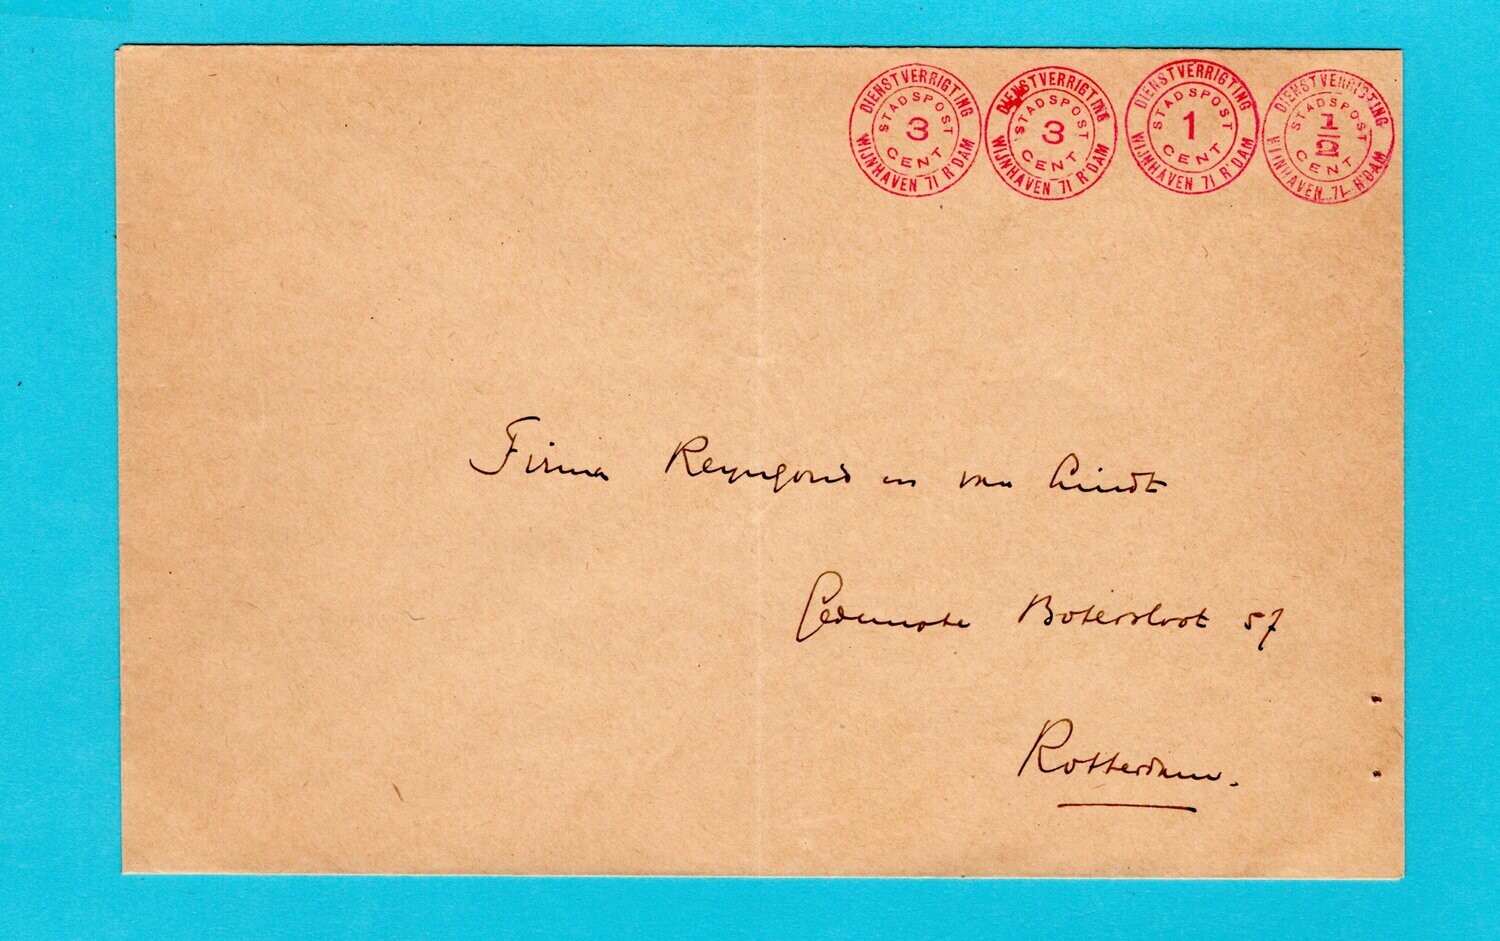 DIENSTVERRIGTING STADSPOST 3 CENT WIJNHAVEN 71 R'DAM
DIENSTVERRIGTING STADSPOST 3 CENT WIJNHAVEN 71 R'DAM
DIENSTVERRIGTING STADSPOST 1 CENT WIJNHAVEN 71 R'DAM
DIENSTVERRIGTING STADSPOST 1/2 CENT WIJNHAVEN 71 R'DAM
Firma en van Lindt
Gedempte Botersloot 57
Rotterdam.